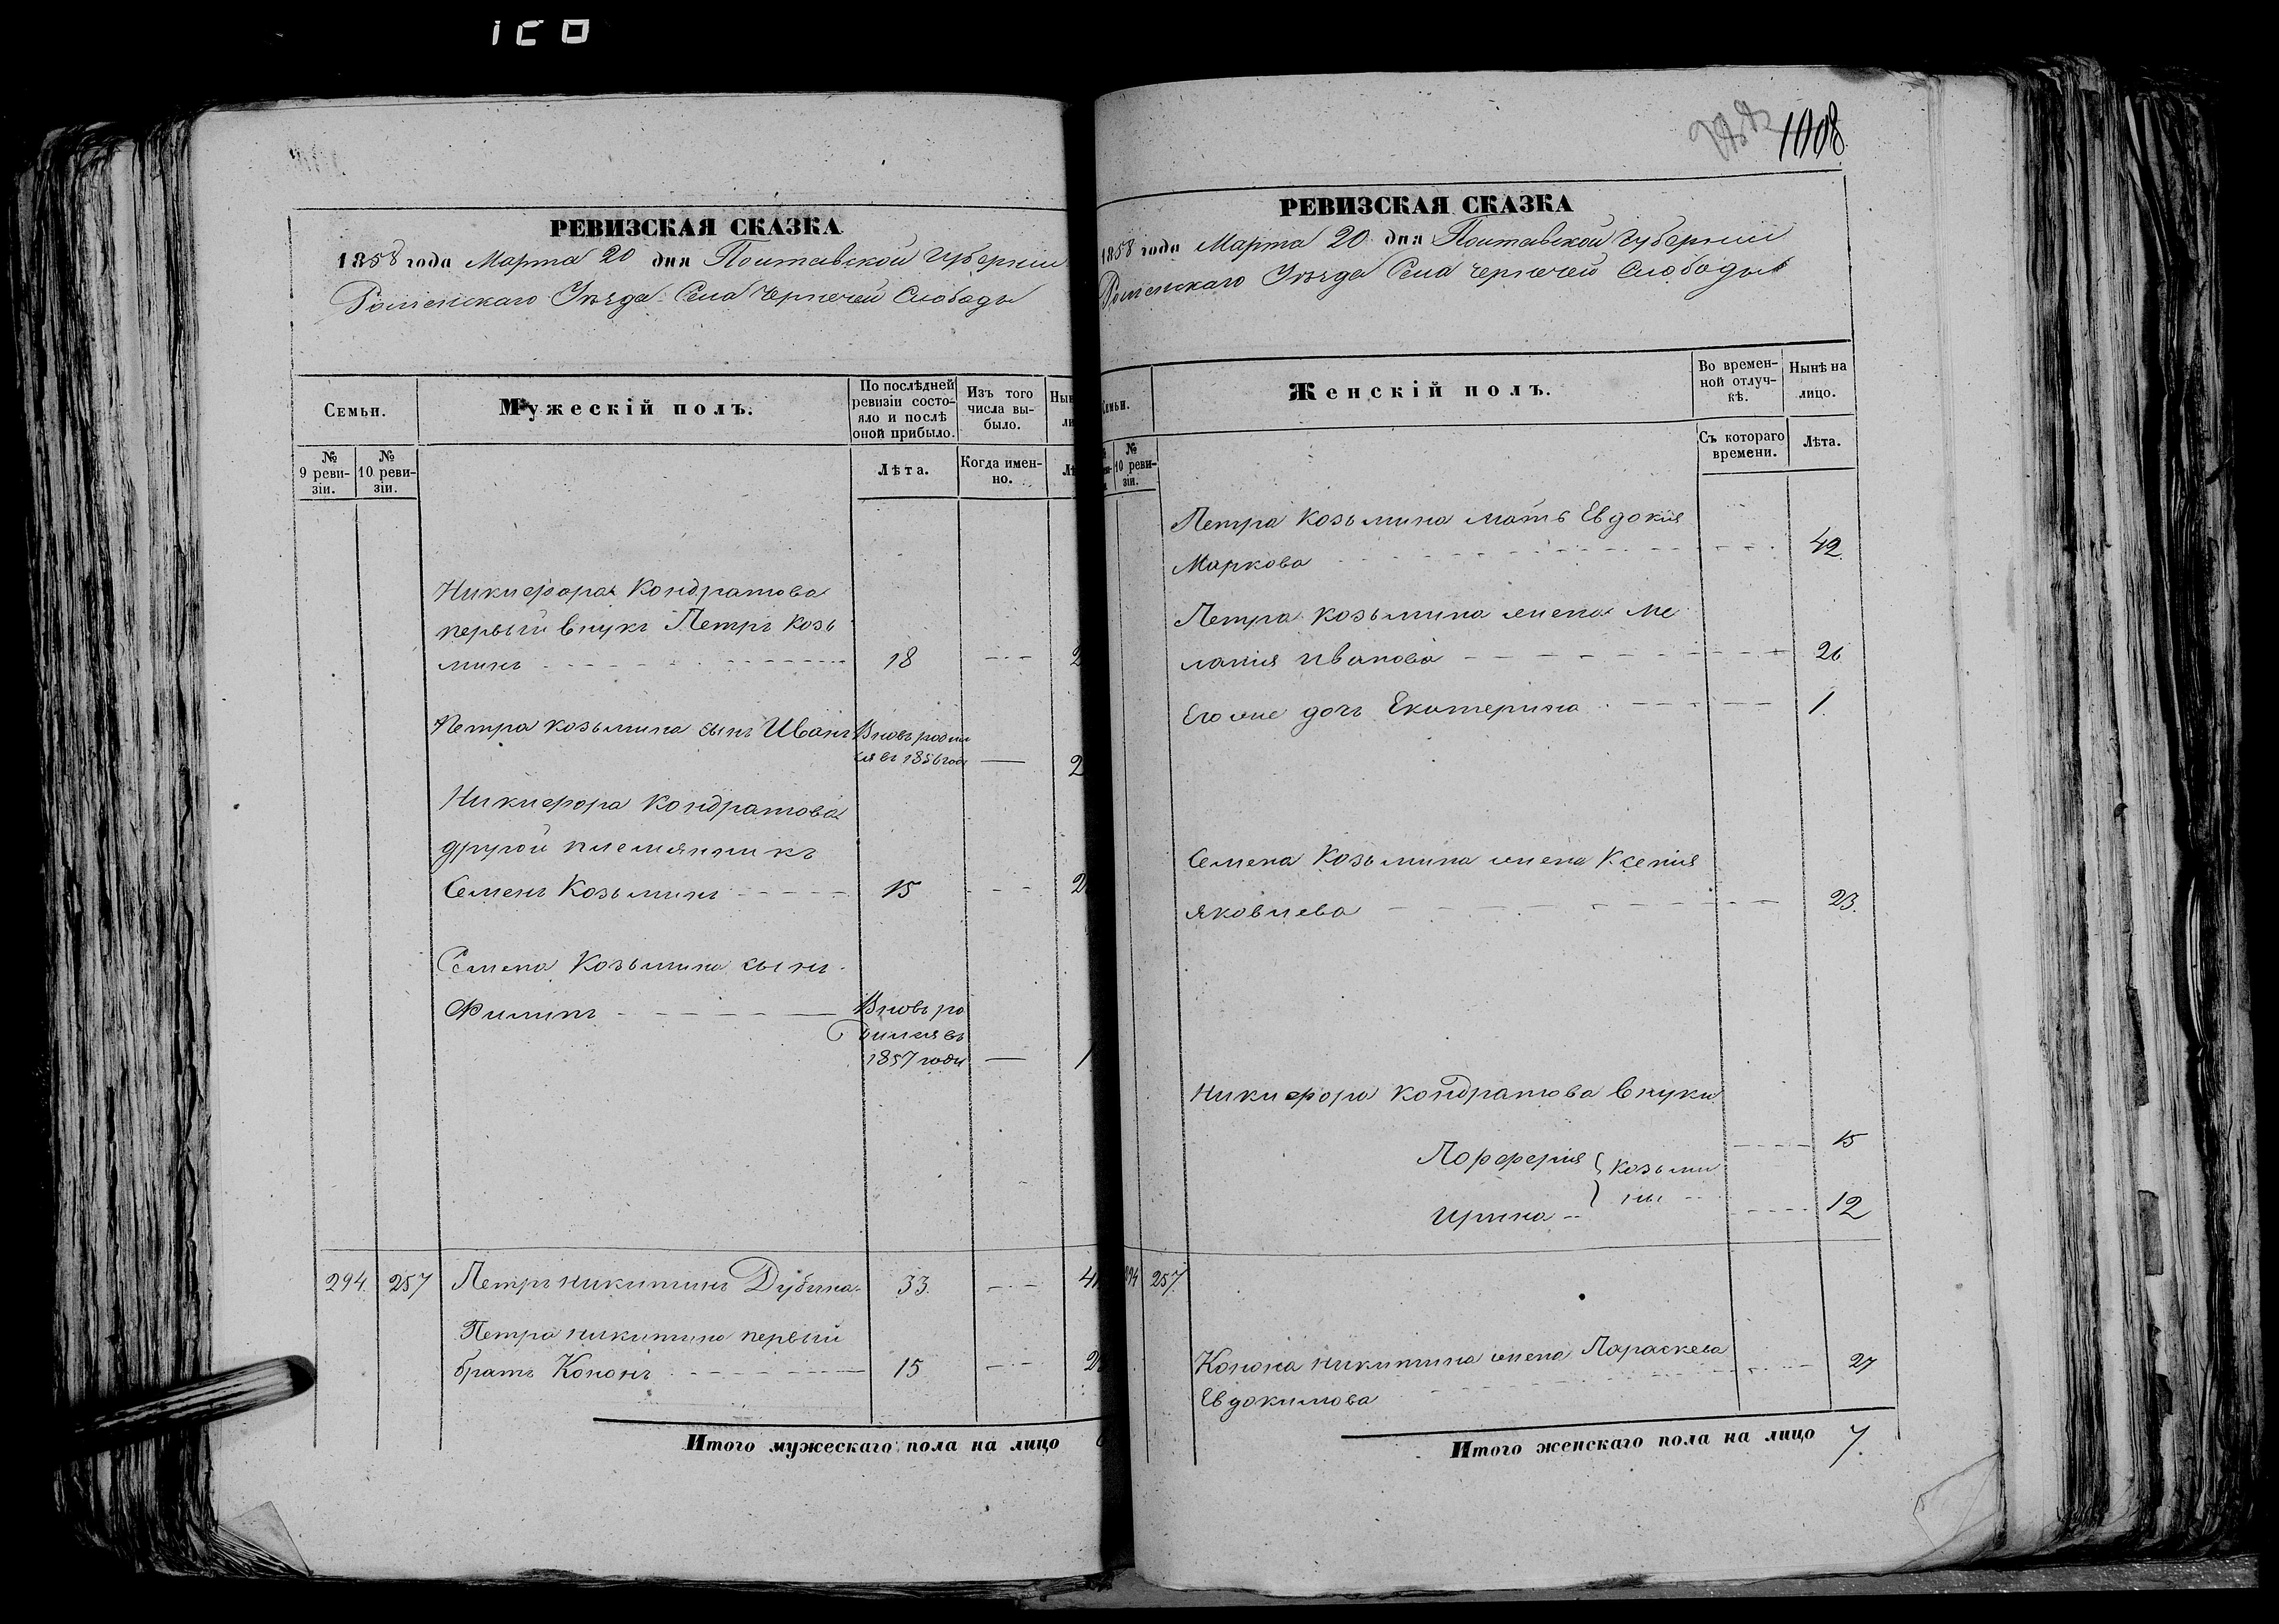 1008
РЕВИЗСКАЯ СКАЗКА
1858 года Марта 20 дня Полтавской Губернии
Роменскаго Уѣзда Села Чернечей Слободы
Семьи.
Мужескій полъ.
По послѣдней ревизіи состояло и послѣ оной прибыло.
Изъ того числа выбыло.
№ 9 ревизіи.
№ 10 ревизіи.
Лѣта.
Когда именно.
Никифора Кондратова
первый внукъ Петръ Козь
минъ 18
Петра Козьмина сынъ Иванъ Вновь родил
ся въ 1856 году 2
Никифора Кондратова
другой племянникъ
Семенъ Козьминъ 15
Семена Козьмина сынъ
Филипъ Вновь ро
дился въ
1857 году 1
294. 257 Петръ Никитинъ Дубина 33.
Петра Никитина первый
братъ Кононъ 15
Итого мужескаго пола на лицо
РЕВИЗСКАЯ СКАЗКА
1858 года Марта 20 дня Полтавской Губернии
Роменскаго Уѣзда Села Чернечей Слободы
Семьи.
Женскій полъ.
Во временной отлучкѣ.
Нынѣ на лицо.
№ 10 ревизіи.
Съ котораго времени.
Лѣта.
Петра Козьмина мать Евдокия
Маркова 42.
Петра Козьмина жена Ме
лания Иванова 26
Его же дочь Екатерина 1.
Семена Козьмина жена Ксения
Яковлева 23.
Никифора Кондратова внуки
Порферия } Козьми 15
Ирина } ны 12
294 257
Конона Никитина жена Параскева 27
Евдокимова
Итого женскаго пола на лицо 7.